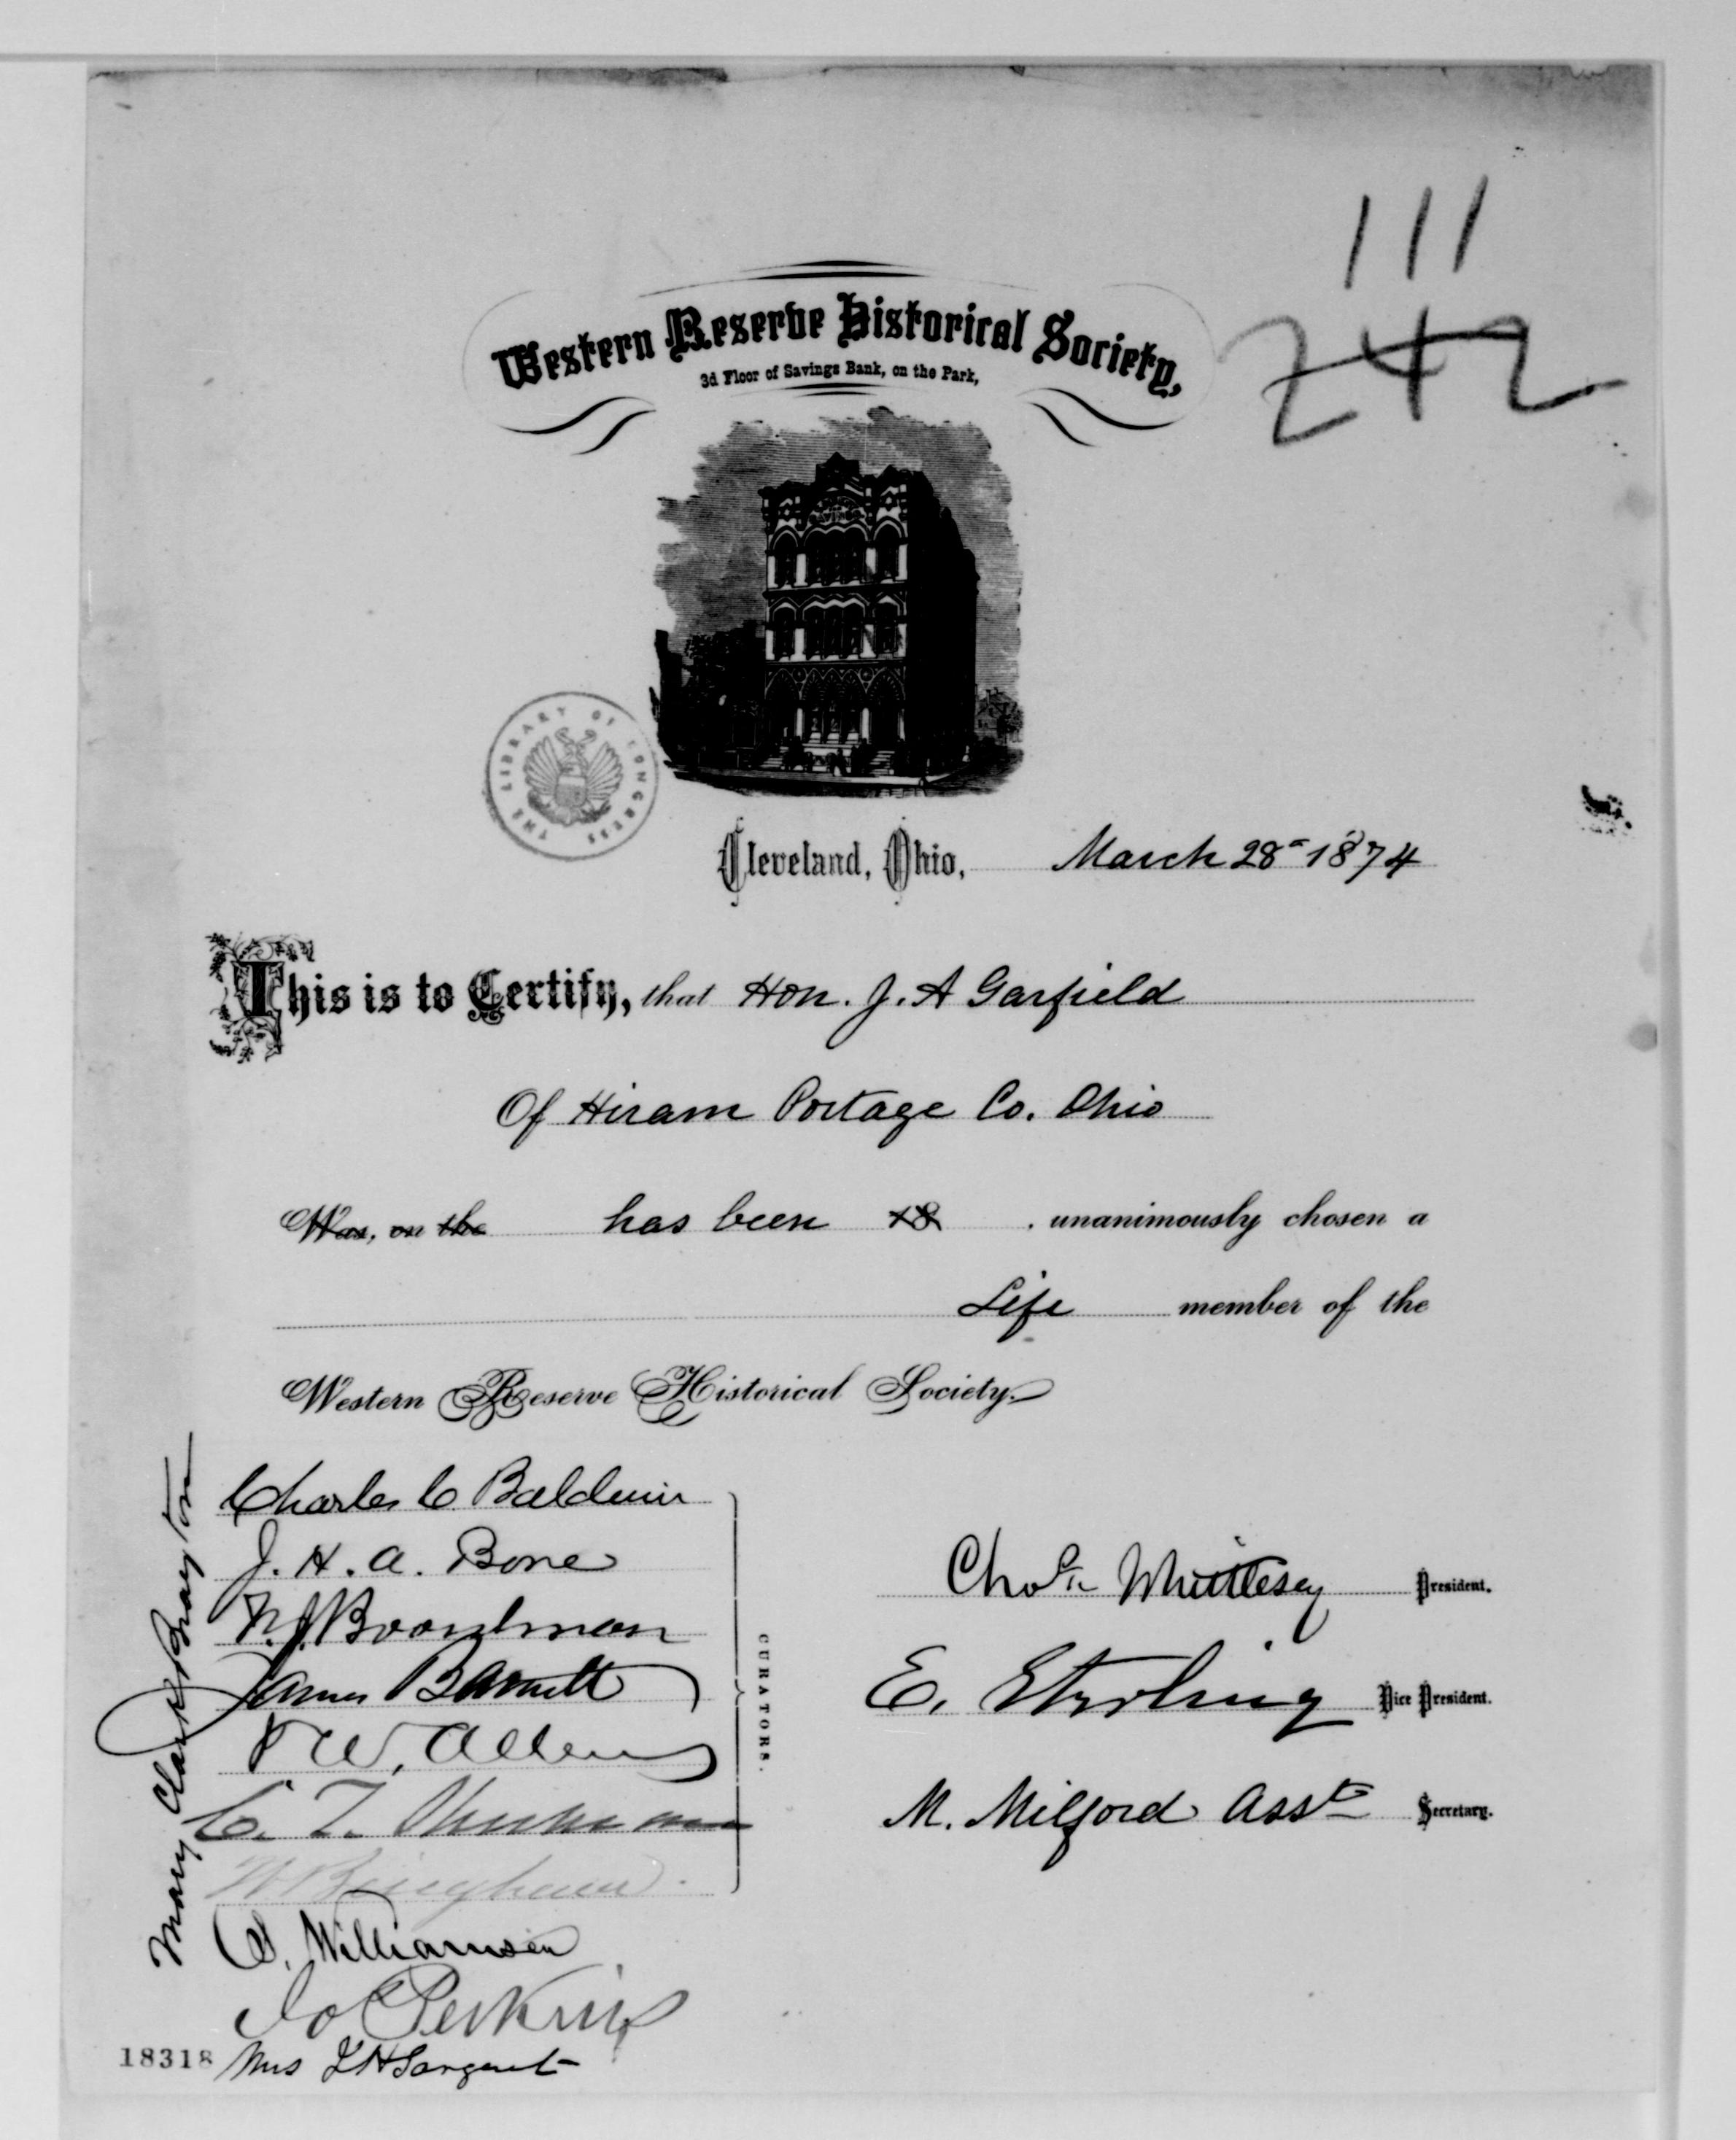 111
242
Western Reserve Historical Society,
3d Floor of Savings Bank, on the Park,
THE LIBRARY OF CONGRESS
Cleveland, Ohio, March 28 1874
This is to Certify, that Hon. J. A Garfield
Of Hiram Portage Co. Ohio
Was, on the has been 18 . unanimously chosen a
Life member of the
Western Reserve Historical Society.
Charles C Baldwin
J. H. A. Bone
W. J. Boardman
James Barnett
W. Allen
C. T.
W Bingham.
S. Williamson
Jos Perkins
Mrs L H Sargent
Mary Clark Brayton
CURATORS.
Chas Whittlesey President.
E. Sterling Vice President.
M. Milford Asst Secretary.
18318